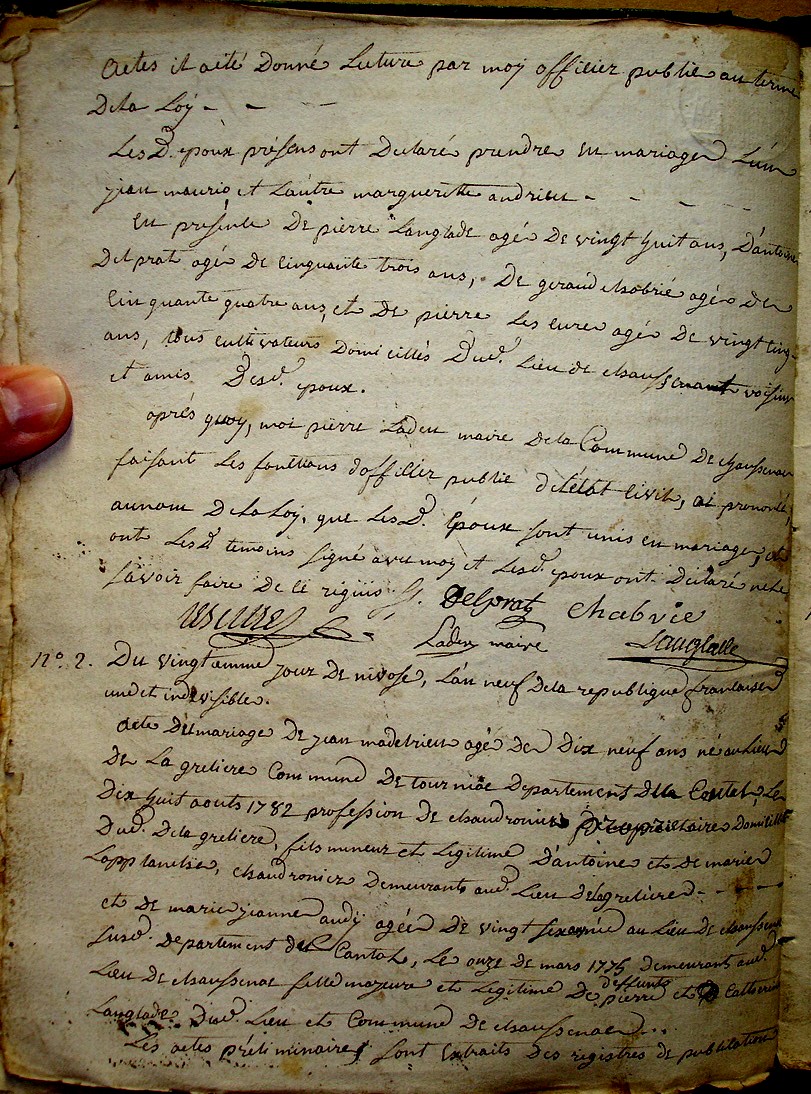 actes il a eté Donné Lecture par moy officier public au terme
De la Loy - - - -
Les D. epoux présens ont Declaré prendre en mariage L'un
jean maurio et L'autre margueritte andrieu - - - -
En présence De pierre Langlade agé De vingt huit ans, D'antoine
Delprat agé De cinquante trois ans, De geraud chabrié agé De
Cinquante quatre ans, et De pierre Les cure agé De vingt cinq
ans, tous cultivateurs Domicillés Dud. Lieu de chaussenac voisins
et amis Desd. epoux.
après quoy, moi pierre Laden maire De la Commune De chaussenac
faisant Les fonctions d'officier public De L'état Civil, ai prononcé,
au nom De La Loy, que Les D. Epoux sont unis en mariage, et
ont Les D. temoins signé avec moy et Les d. epoux ont Declaré ne le
savoir faire De ce réquis
Delprat Chabrie
Lescure Laden maire Langlade
n°. 2. Du vingtieme jour De nivose, L'an neuf De la republique francaise
une et indivisible.
acte De mariage De jean madelrieu agé De Dix neuf ans né au Lieu
De La greliere Commune De tourniac Departement Du Cantal, Le
Dix huit aouts 1782 profession De chaudronier propriétaire Domicillié
Dud. De la greliere, fils mineur et Legitime D'antoine et de marie
Lapplanelie, chaudronier Demeurants aud. Lieu De la greliere - - - -
et De marie jeanne audy agée De vingt six née au Lieu De chaussenac
susd. Departement du Cantal, Le onze De mars 1775 demeurant aud.
Lieu De chaussenac fille majeure et Legitime De deffunts pierre et Catherine
Langlade Dud. Lieu et Commune De chaussenac - -
Les actes préliminaires sont Extraits Des registres De publication